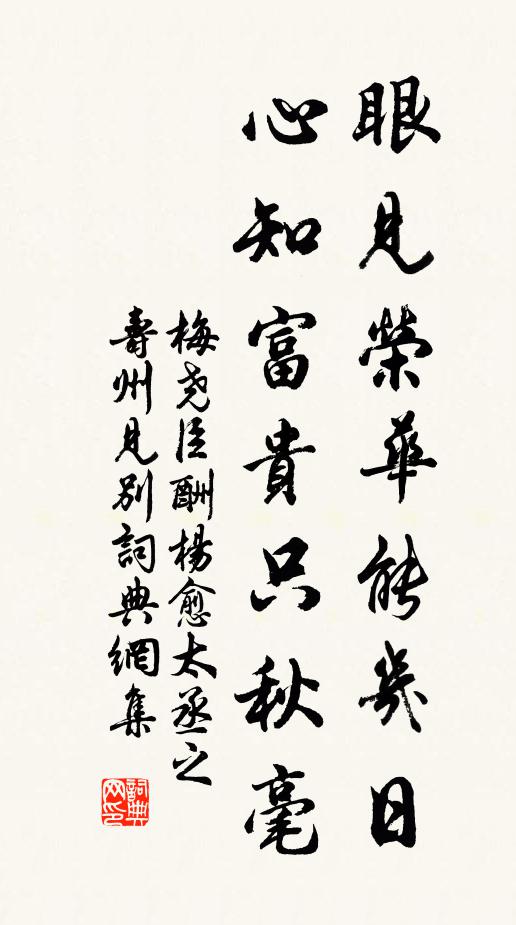 眼見榮華能幾日
心知富貴只秋毫
梅堯臣酬楊愈太丞之
壽州見別詞典網集
詞典网印